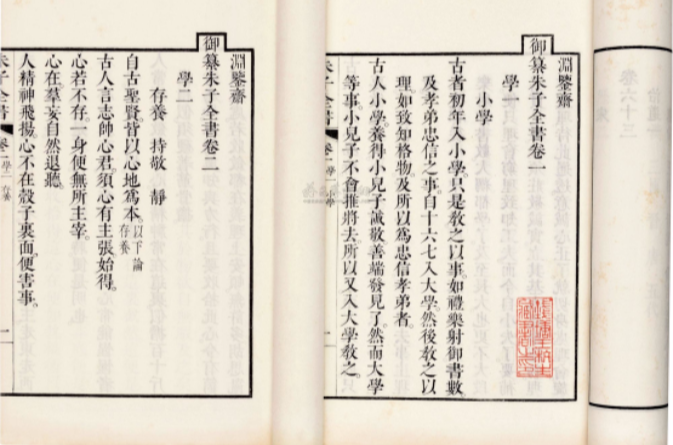 淵鑒齋
御纂朱子全書卷一
學一
小學
古者初年入小學。只是教之以事。如禮樂射御書數。
及孝弟忠信之事。自十六七入大學。然後教之以
理。如致知格物。及所以為忠信孝弟者。
古人小學。養得小兒子誠敬善端發見了。然而大學
等事。小兒子不會推將去。所以又入大學教之。
朱子全書
卷一 學一 小學
一
御纂朱子全書卷二
學二
存養 持敬 靜
自古聖賢。皆以心地為本。以下論存養
古人言志帥心君。須心有主張始得。
心若不存。一身便無所主宰。
心在。羣妄自然退聽。
人精神飛揚。心不在殼子裏面。便害事。
朱子全書
卷二 學二 存養
一